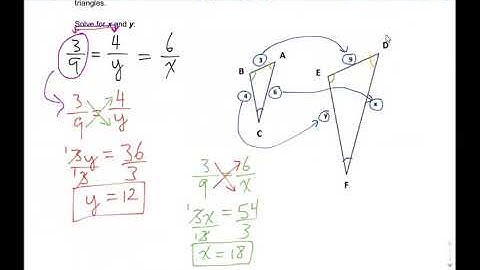 triangles.
Solve for x and y:
3/9 = 4/y = 6/x
3/9 4/y
3y/3 = 36/3
y = 12
3/9 6/x
3x/3 = 54/3
x = 18
3 A
B
4 6
C
9 D
E
y x
F